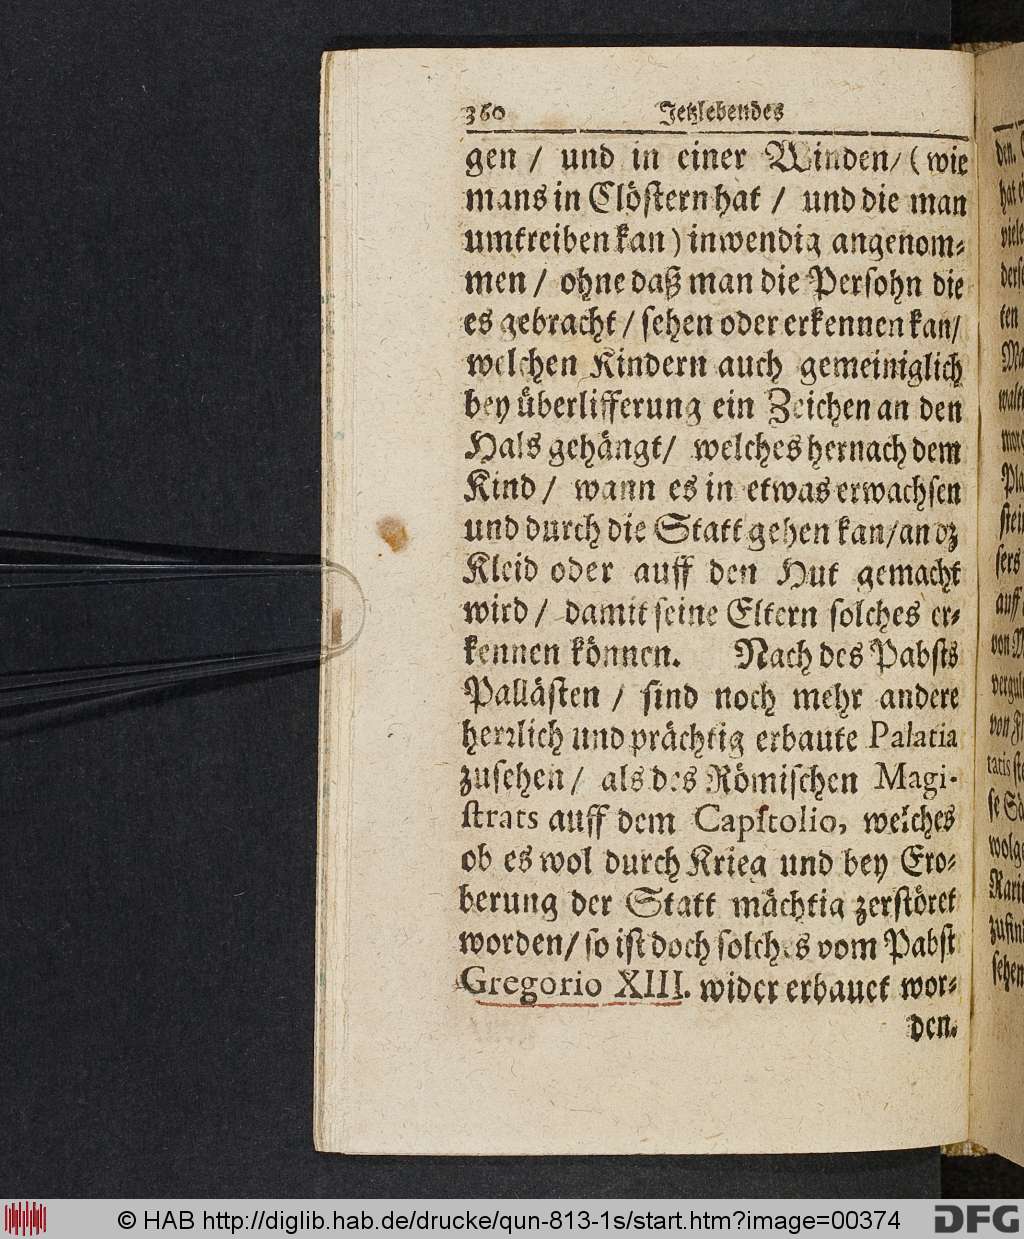 360 Jetzlebendes
gen / und in einer Winden / (wie
mans in Clöstern hat / und die man
umtreiben kan) inwendig angenom⸗
men / ohne daß man die Persohn die
es gebracht / sehen oder erkennen kan /
welchen Kindern auch gemeiniglich
bey überlifferung ein Zeichen an den
Hals gehängt / welches hernach dem
Kind / wann es in etwas erwachsen
und durch die Statt gehen kan / an dz
Kleid oder auff den Hut gemacht
wird / damit seine Eltern solches er⸗
kennen können. Nach des Pabsts
Pallästen / sind noch mehr andere
herrlich und prächtig erbaute Palatia
zusehen / als des Römischen Magi-
strats auff dem Capitolio, welches
ob es wol durch Krieg und bey Ero⸗
berung der Statt mächtig zerstöret
worden / so ist doch solches vom Pabst
Gregorio XIII. wider erbauet wor⸗
den.
© HAB http://diglib.hab.de/drucke/qun-813-1s/start.htm?image=00374
DFG